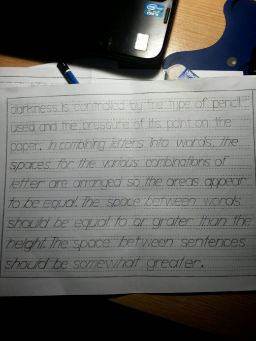 darkness is controlled by the type of pencil
used and the pressure of its point on the
paper. In combining letters into words, the
spaces for the various combinations of
letter are arranged so the areas appear
to be equal. The space between words
should be equal to or grater than the
height. The space between sentences
should be somewhat greater.